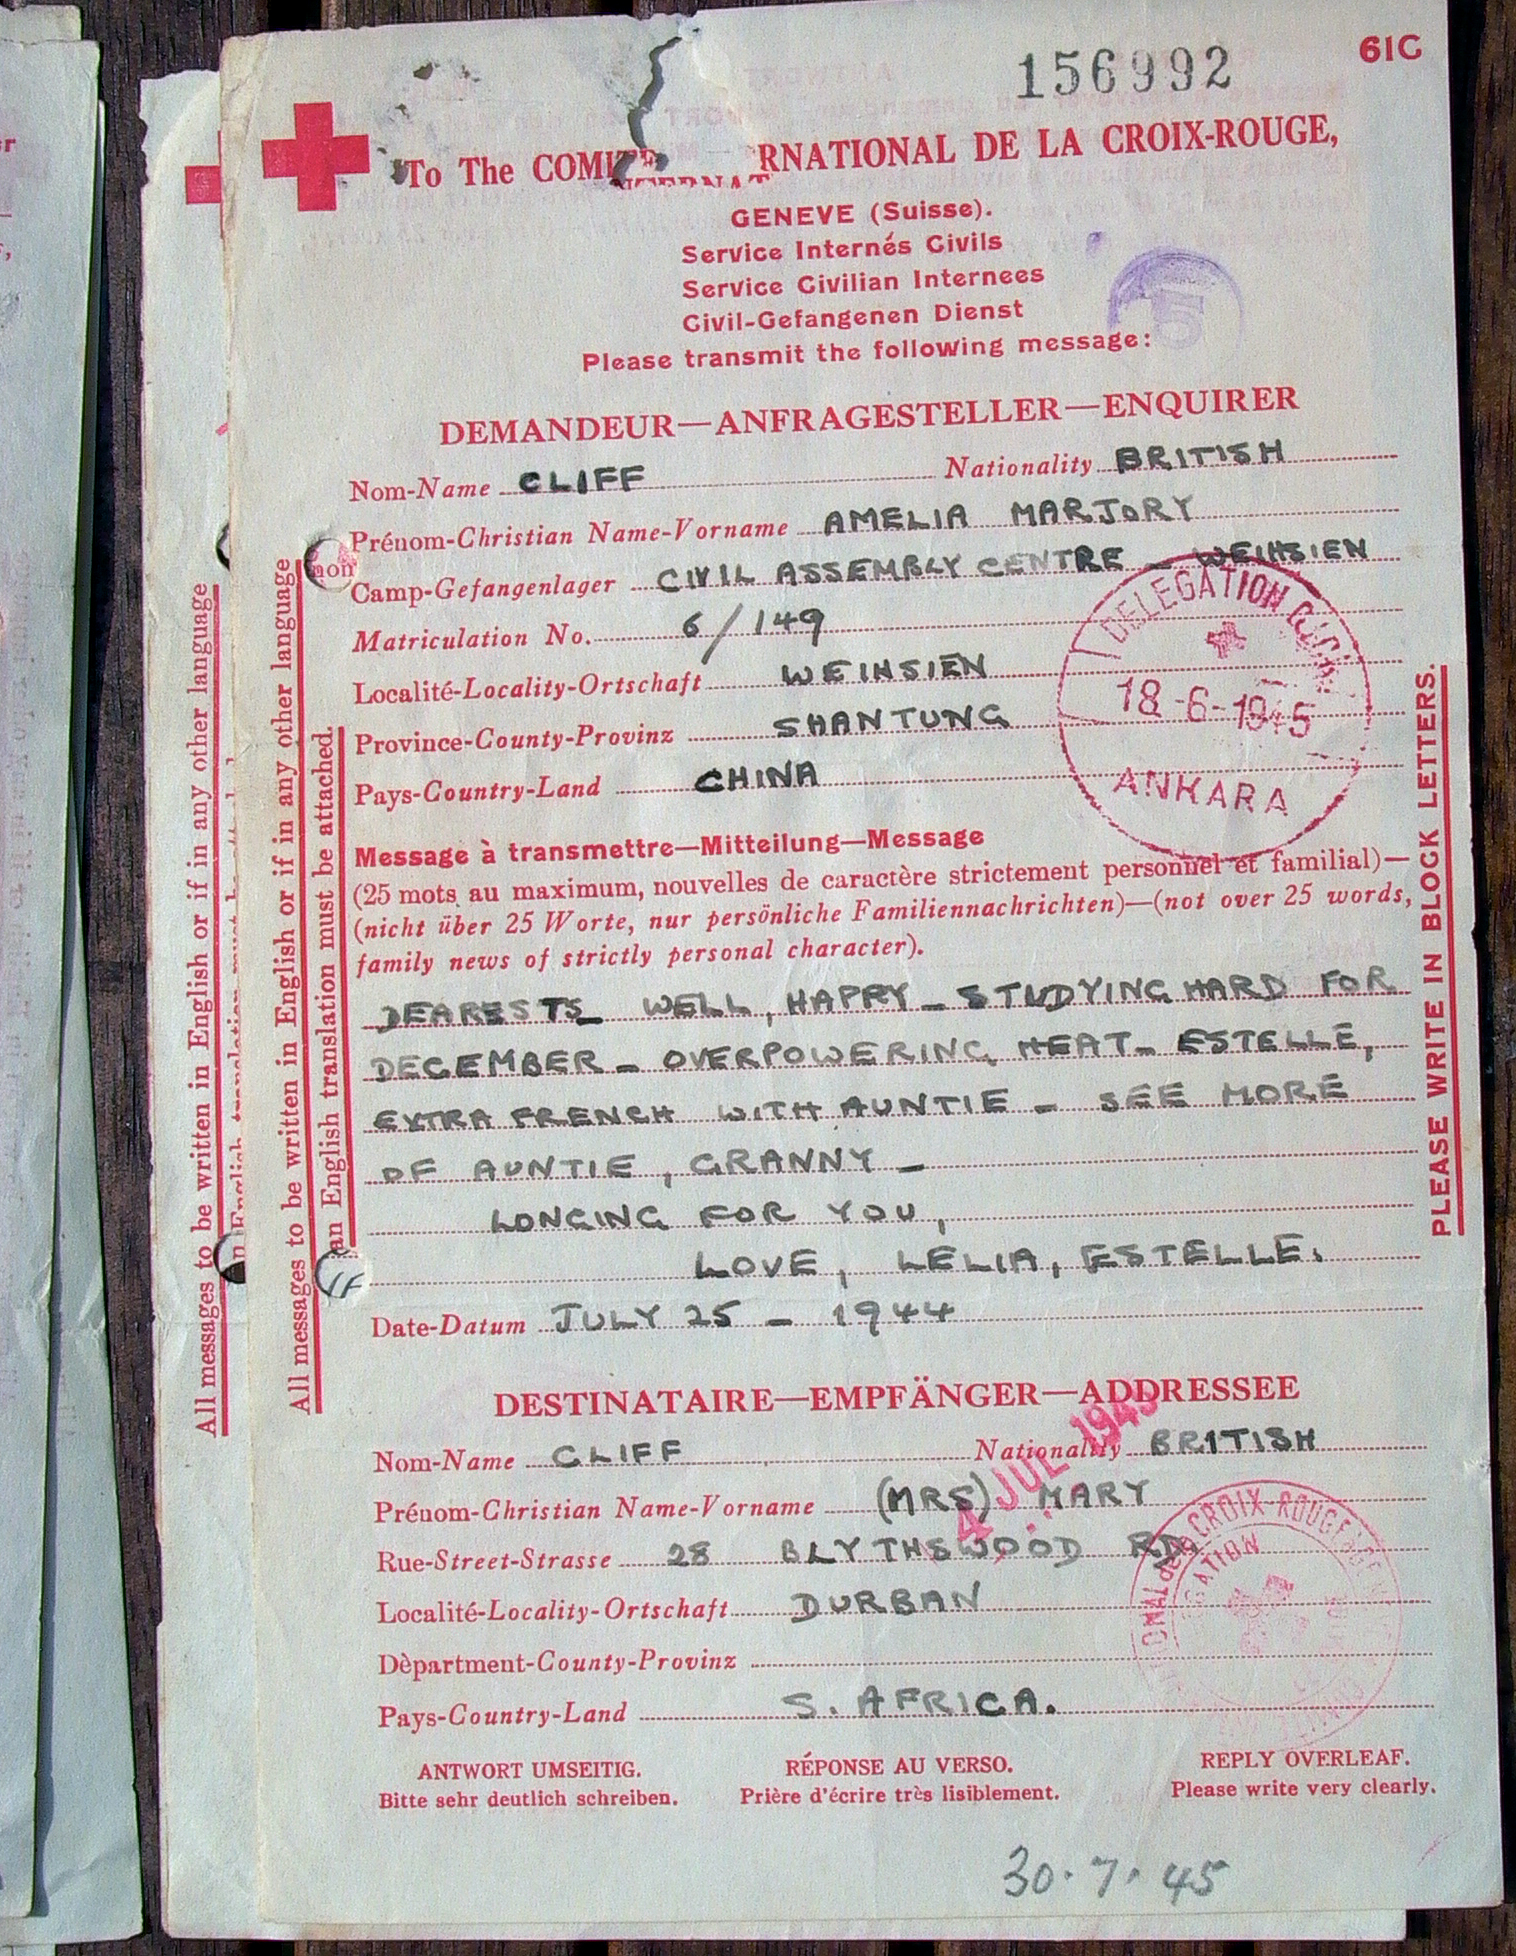 61C
156992
To The COMITE RNATIONAL DE LA CROIX-ROUGE,
GENEVE (Suisse).
Service Internés Civils
Service Civilian Internees
Civil-Gefangenen Dienst
5
Please transmit the following message:
DEMANDEUR—ANFRAGESTELLER—ENQUIRER
Nom-Name CLIFF Nationality BRITISH
Prénom-Christian Name-Vorname AMELIA MARJORY
Camp-Gefangenlager CIVIL ASSEMBLY CENTRE - WEIHSIEN
Matriculation No. 6/149
Localité-Locality-Ortschaft WEIHSIEN
Province-County-Provinz SHANTUNG
Pays-Country-Land CHINA
DELEGATION
18-6-1945
ANKARA
Message à transmettre—Mitteilung—Message
(25 mots au maximum, nouvelles de caractère strictement personnel et familial)—
(nicht über 25 Worte, nur persönliche Familiennachrichten)—(not over 25 words,
family news of strictly personal character).
DEARESTS WELL, HAPPY - STUDYING HARD FOR
DECEMBER - OVERPOWERING HEAT - ESTELLE,
EXTRA FRENCH WITH AUNTIE - SEE MORE
OF AUNTIE, GRANNY -
LONGING FOR YOU,
LOVE, LELIA, ESTELLE.
Date-Datum JULY 25 - 1944
DESTINATAIRE—EMPFÄNGER—ADDRESSEE
Nom-Name CLIFF Nationality BRITISH
4 JUL 1945
Prénom-Christian Name-Vorname (MRS) MARY
Rue-Street-Strasse 28 BLYTHSWOOD RD.
Localité-Locality-Ortschaft DURBAN
Dèpartment-County-Provinz
Pays-Country-Land S. AFRICA.
CROIX-ROUGE
ANTWORT UMSEITIG. RÉPONSE AU VERSO. REPLY OVERLEAF.
Bitte sehr deutlich schreiben. Prière d'écrire très lisiblement. Please write very clearly.
30.7.45
All messages to be written in English or if in any other language
an English translation must be attached.
PLEASE WRITE IN BLOCK LETTERS.
All messages to be written in English or if in any other language